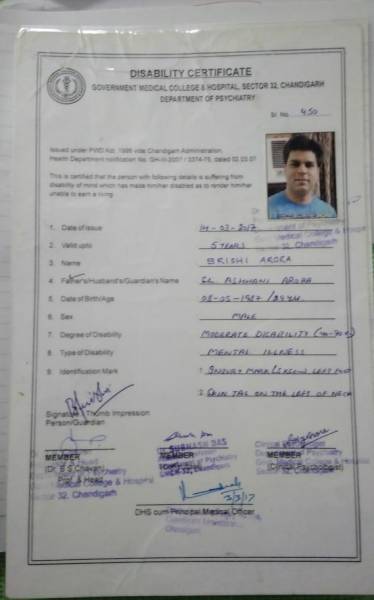 DISABILITY CERTIFICATE
GOVERNMENT MEDICAL COLLEGE & HOSPITAL, SECTOR 32, CHANDIGARH
DEPARTMENT OF PSYCHIATRY
Sr. No. 450
Issued under PWD Act, 1995 vide Chandigarh Administration,
Health Department notification No. dated 02.03.07
This is certified that the person with following details is suffering from
disability of mind which has made him/her disabled as to render him/her
unable to earn a living
1. Date of issue 14-03-2017
2. Valid upto 5 YEARS
3. Name BRISHI ARORA
4. Father's/Husband's/Guardian's Name SH. ASHWANI ARORA
5. Date of Birth/Age 08-05-1987
6. Sex MALE
7. Degree of Disability MODERATE DISABILITY
8. Type of Disability MENTAL ILLNESS
9. Identification Mark 1. INJURY MARK LEFT
2. SKIN TAG ON THE LEFT OF NECK
Signature / Thumb Impression
Person/Guardian
MEMBER MEMBER MEMBER
(Dr. B.S. Chavan) SUBHASH DAS (Clinical Psychologist)
Prof. & Head
Sector 32, Chandigarh
DHS cum Principal Medical Officer